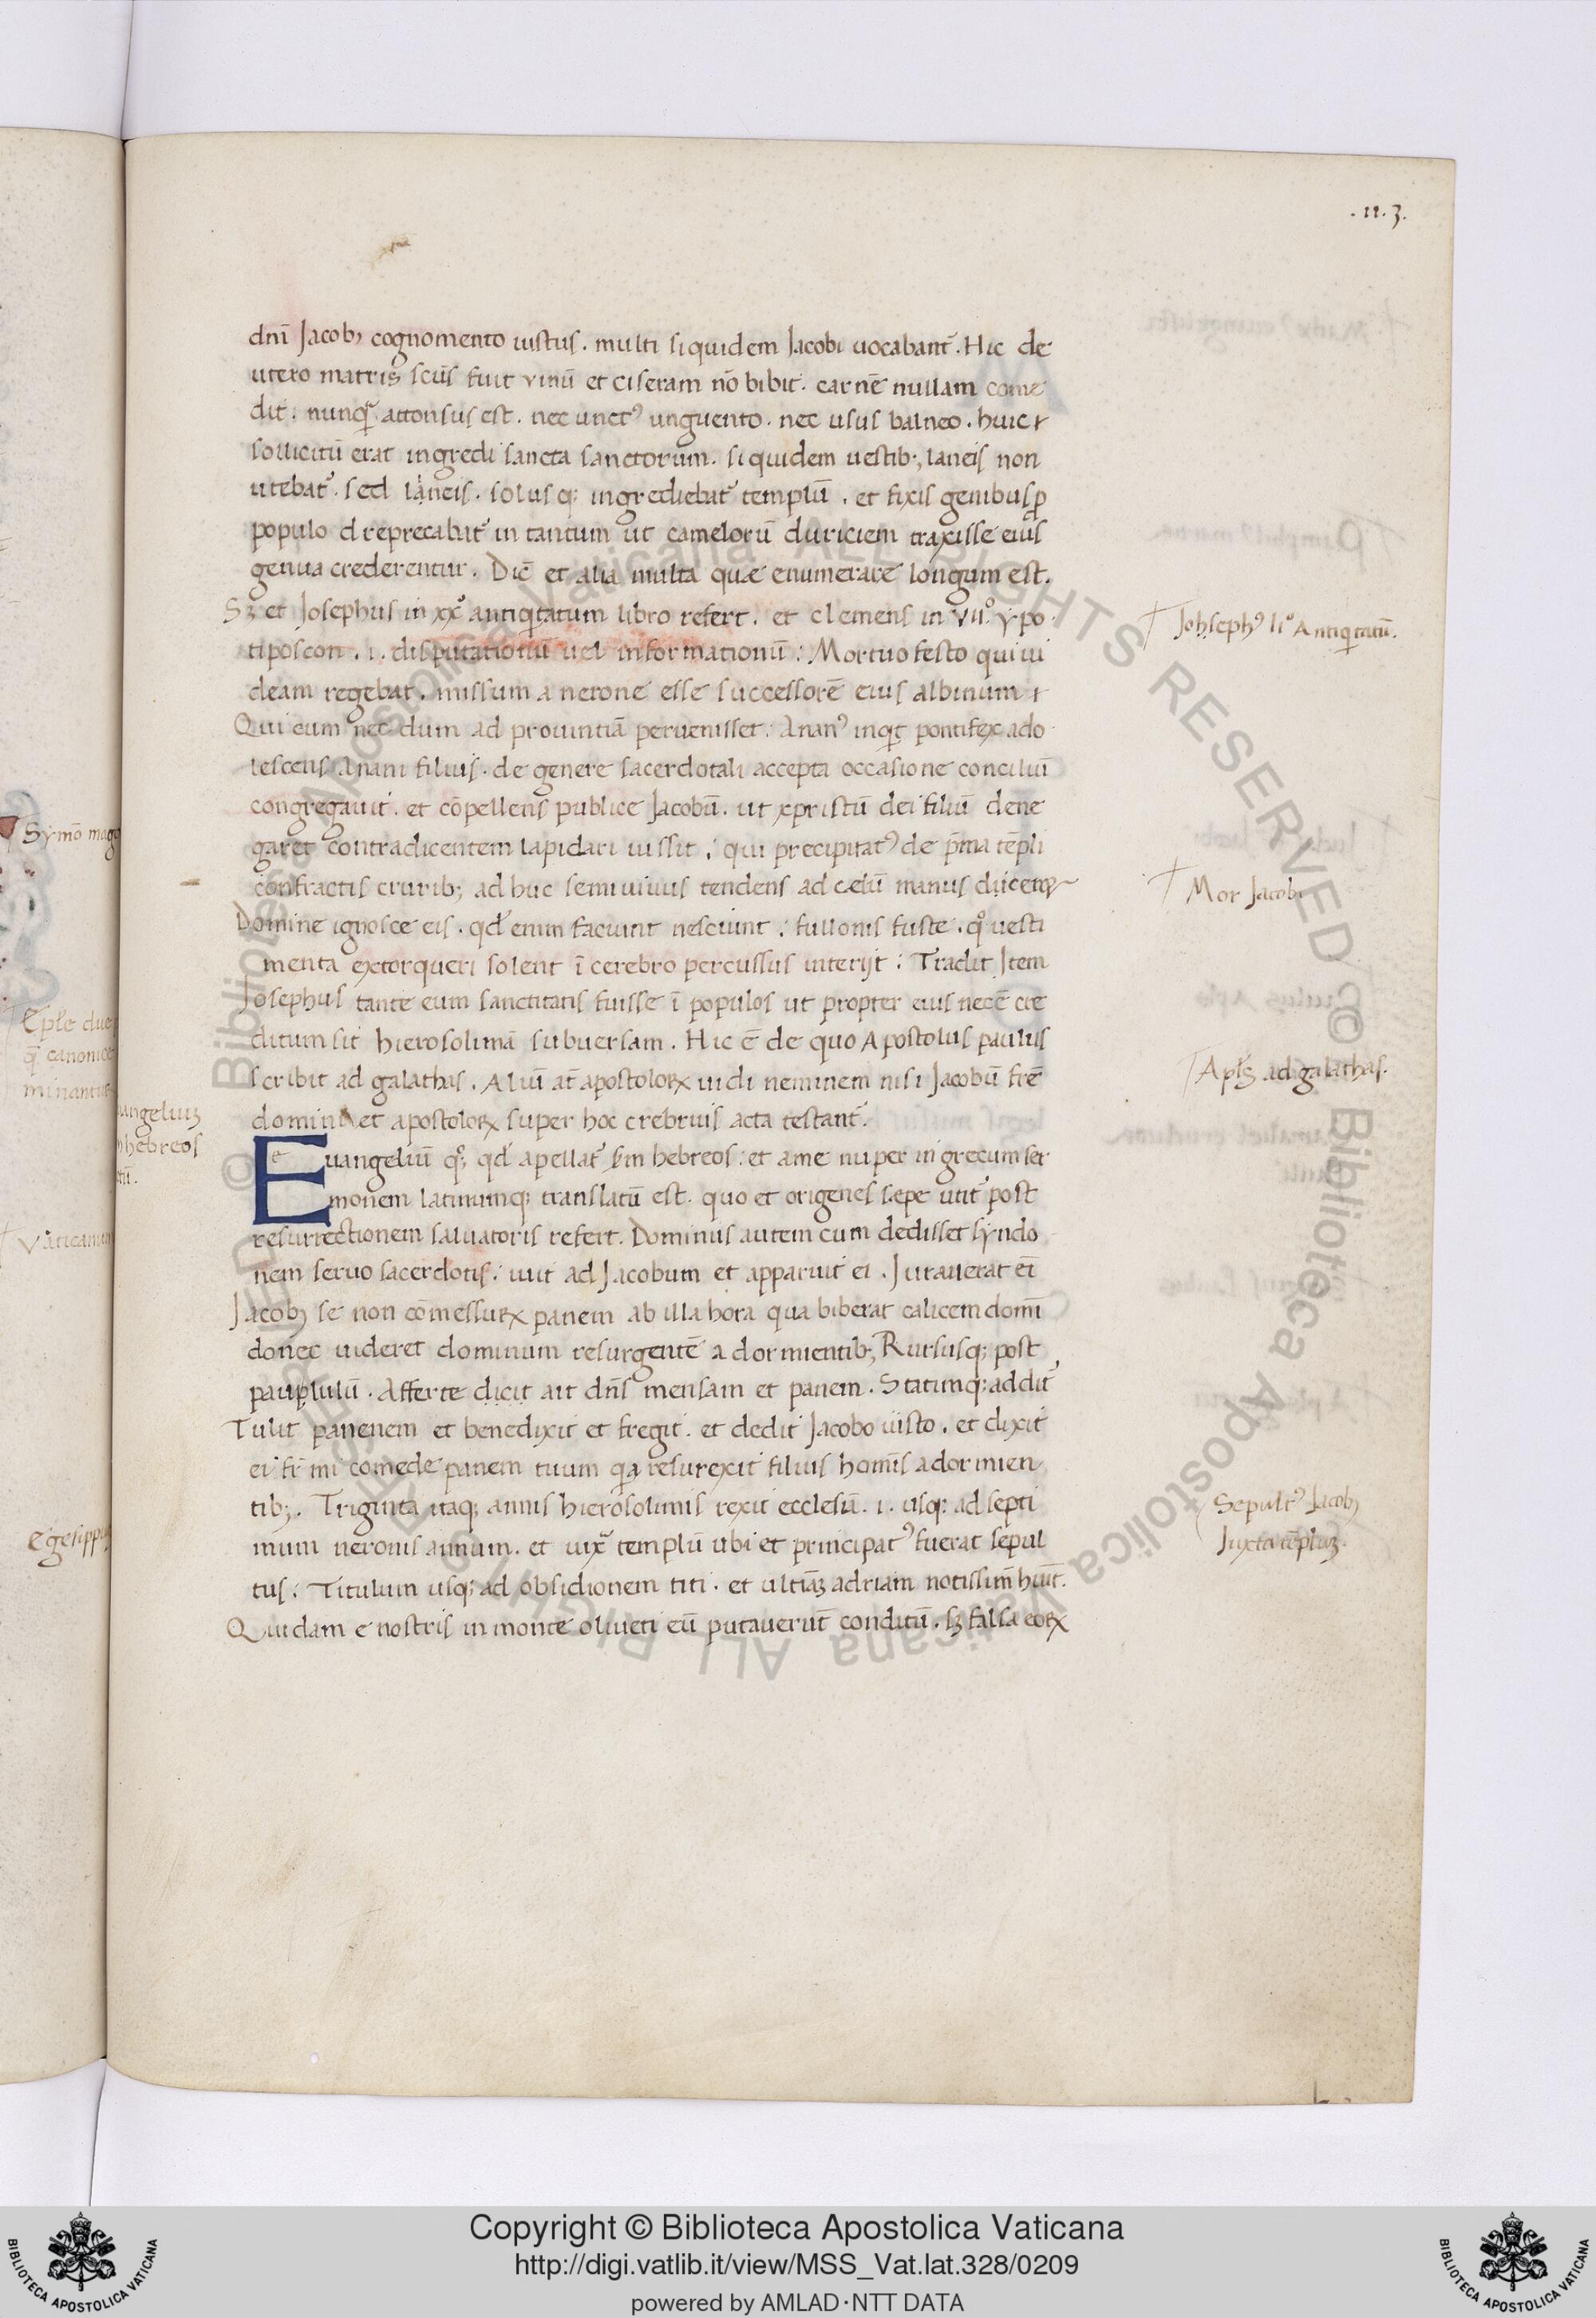 .11.3.
dnī Jacobꝰ cognomento iustus. multi siquidem Jacobi uocabant᷒. Hic de
utero matris scūs fuit vinū et ciseram nō bibit. carnē nullam come
dit. nunqᷓ attonsus est. nec unctꝰ unguento. nec usus balneo. huic
sollicitū erat ingredi sancta sanctorum. siquidem uestib; laneis non
utebat᷒. sed laneis. solusq; ingrediebat᷒ templū. et fixis genibus ꝓ
populo dreprecabat᷒ in tantum ut camelorū duriciem traxisse eius
genua crederentur. Dic̄ et alia multa quæ enumerare longum est.
Sꝫ et Josephus in xxͦ antiqͥtatum libro refert. et clemens in VIIͦ. ypo
tiposcon .i. disputationū uel informationū: Mortuo festo qui iu
deam regebat. missum a nerone esse successorē eius albinum
Qui cum nec dum ad prouintiā peruenisset: Ananꝰ inqͥt pontifex ado
lescens Anani filius. de genere sacerdotali accepta occasione conciliū
congregauit. et cōpellens publice Jacobū. ut xpristū dei filiū dene
garet contradicentem lapidari iussit. qui precipitatꝰ de p̄ma tēpli
confractis crurib; adhuc semiuiuus tendens ad cælū manus
Domine ignosce eis. qd̄ enim faciunt nesciunt. fullonis fuste. qͦ uesti
menta extorqueri solent ī cerebro percussus interijt: Tradit Item
Josephus tante eum sanctitatis fuisse ī populos ut propter eius necē cre
ditum sit hierosolimā subuersam. Hic ē de quo Apostolus paulus
scribit ad galathas. Aliū at̄ apostolorꝝ uidi neminem nisi Jacobū frē
domini et apostolorꝝ super hoc crebruis acta testant᷒.
Euangeliū qͦꝫ qd̄ apellat᷒ sm̄ hebreos: et a me nuper in grecum ser
monem latinumq; translatū est. quo et origenes sæpe utit᷒ post
resurrectionem saluatoris refert. Dominus autem cum dedisset syndo
nem seruo sacerdotis: iuit ad Jacobum et apparuit ei. Jurauerat eī
Jacobꝰ se non cōmessurꝝ panem ab illa hora qua biberat calicem domī
donec uideret dominum resurgentē a dormientib; Rursusq; post
paupłulū. Afferte dicit ait dn̄s mensam et panem. Statimq; addit᷒
Tulit panenem et benedixit et fregit. et dedit Jacobo iusto. et dixit
ei fr̄ mi comede panem tuum qͥa resurexit filius homīs a dormien
tib;. Triginta itaq; annis hierosolimis rexit ecclesiā .i. usq; ad septi
mum neronis annum. et iuxᷓ templū ubi et principatꝰ fuerat sepul
tus: Titulum usq; ad obsidionem titi. et ultiāꝫ adriam notissim̄ huīt.
Quidam e nostris in monte oliueti eū putauerūt conditū. sꝫ falsa eorꝝ
Johsephꝰ liͦ Antiqͥtatū.
Mor Jacobi
Apłs ad galathas.
Sepultꝰ Jacobꝰ
Iuxta tēpluꝫ.
Symō mag
Epłe due
qͣ canonice
minantur
angeliuꝫ
hebreos
Vaticanum
Egesippus
© Biblioteca Apostolica Vaticana ALL RIGHTS RESERVED
Copyright © Biblioteca Apostolica Vaticana
http://digi.vatlib.it/view/MSS_Vat.lat.328/0209
powered by AMLAD·NTT DATA
BIBLIOTECA APOSTOLICA VATICANA
BIBLIOTECA APOSTOLICA VATICANA